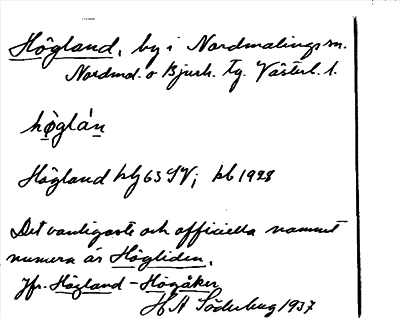 Högland, by i Nordmalings sn.
Nordmal. o Bjurh. tg. Västerb. l.
hø̀glán
Högland kbl 63 SV; kb 1928
Det vanligaste och officiella namnet
numera är Högliden.
Jfr. Högland – Högåker
H A Söderberg 1937